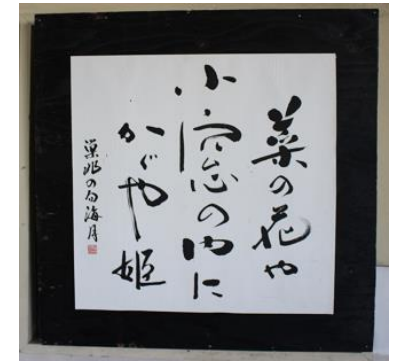 菜の花や
小窓の内に
かぐや姫
巣兆の句 海月